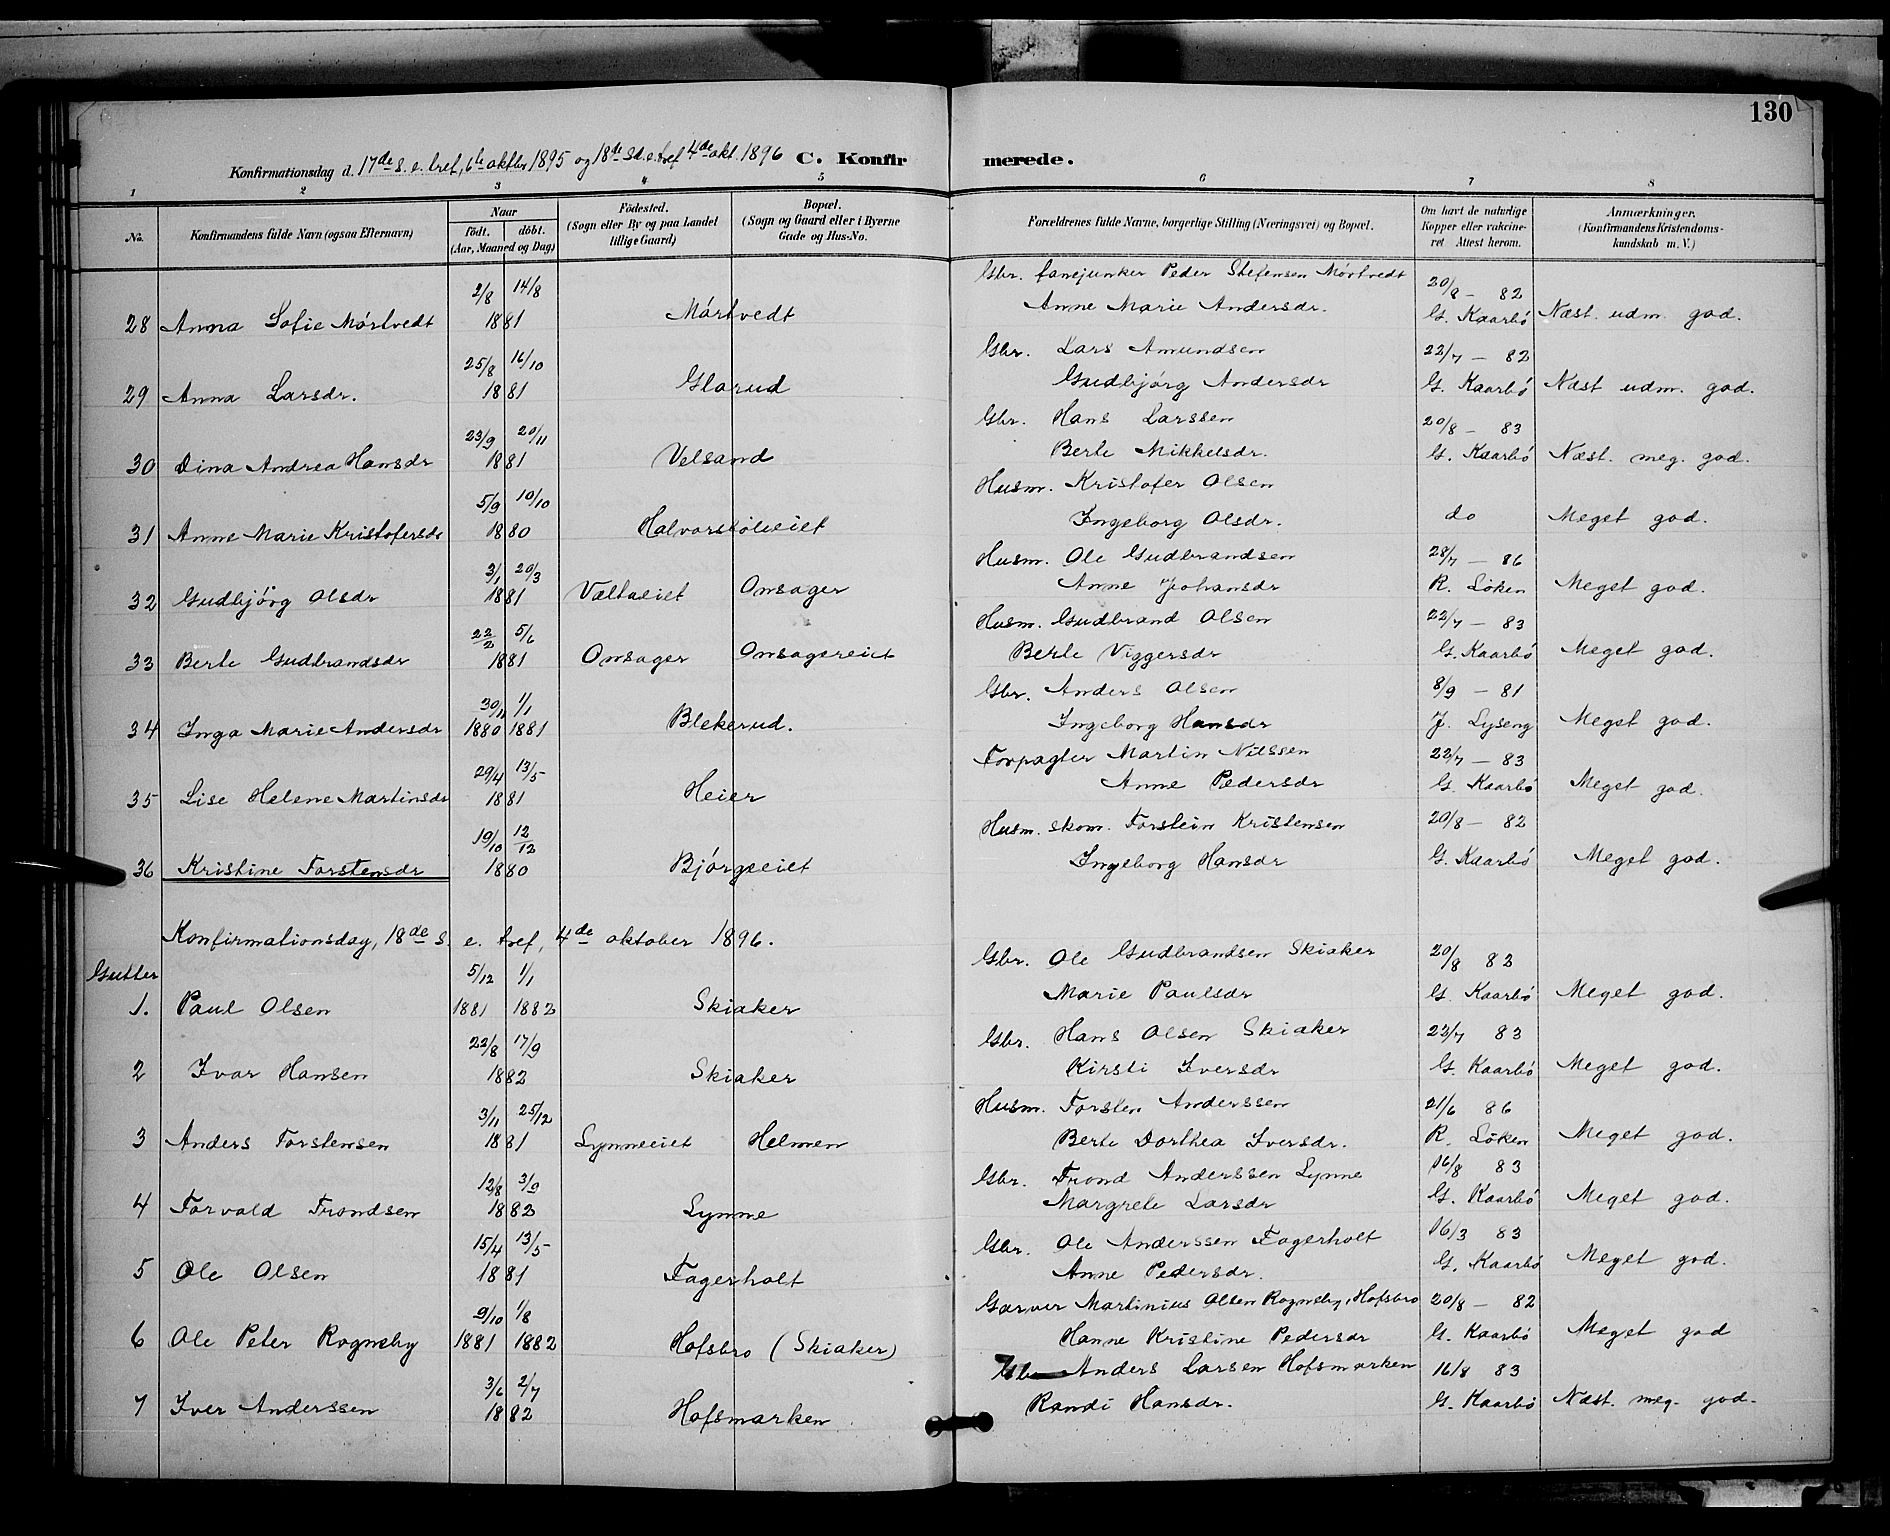 130
Konfirmationsdag d. 17de s. e. tref, 6te oktbr 1895 og 18de Sd. e. tref 4de okt. 1896 C. Konfirmerede.
1 2 3 4 5 6 7 8
No. Konfirmandens fulde Navn (ogsaa Efternavn) Naar født. døbt. (Aar, Maaned og Dag) Fødested. (Sogn eller By og paa Landet tillige Gaard) Bopæl. (Sogn og Gaard eller i Byerne Gade og Hus-No. Forældrenes fulde Navne, borgerlige Stilling (Næringsvei) og Bopæl. Om havt de naturlige Kopper eller vakcineret Attest herom. Anmærkninger. (Konfirmandens Kristendomskundskab m. V.)
2/8 14/8 Gbr. fanejunker Peder Stefensen Mørtvedt 20/8 - 82
28 Anna Sofie Mørtvedt 1881 Mørtvedt Anne Marie Andersdr. G. Kaarbø Næst. udm. god.
25/8 16/10 Gbr. Lars Amundsen 22/7 - 82
29 Anna Larsdr. 1881 Glarud Gudbjørg Andersdr G. Kaarbø Næst udm. god.
23/9 20/11 Gbr. Hans Larssen 20/8 - 83
30 Dina Andrea Hansdr 1881 Velsand Berte Mikkelsdr. G. Kaarbø Næst. meg. god.
5/9 10/10 Husm. Kristofer Olsen
31 Anne Marie Kristofersdr 1880 Ingeborg Olsdr. do Meget god.
3/1 20/3 Husm. Ole Gudbrandsen 28/7 - 86
32 Gudbjørg Olsdr 1881 Væltaeiet Onsager Anne Johansdr R. Løken Meget god.
22/2 5/6 Husm. Gudbrand Olsen 22/7 - 83
33 Berte Gudbrandsdr 1881 Onsager Onsagereiet Berte Viggersdr G. Kaarbø Meget god.
30/11 1/1 Gbr. Anders Olsen 8/9 - 81
34 Inga Marie Andersdr 1880 1881 Blekerud. Ingeborg Hansdr J. Lyseng Meget god.
29/4 13/5 Forpagter Martin Nilssen 22/7 - 83
35 Lise Helene Martinsdr 1881 Heier Anne Pedersdr G. Kaarbø Meget god.
19/10 12/12 Husm. skom. Torstein Kristensen 20/8 - 82
36 Kristine Torstensdr 1880 Bjørgeeiet Ingeborg Hansdr G. Kaarbø Meget god.
Konfirmationsdag, 18de s. e. tref, 4de oktober 1896.
Gutter 5/12 1/1 Gbr. Ole Gudbrandsen Skiaker 20/8 82
1. Paul Olsen 1881 1882 Skiaker Marie Paulsdr G. Kaarbø Meget god.
22/8 17/9 Gbr. Hans Olsen Skiaker 22/7 83
2 Ivar Hansen 1882 Skiaker Kirsti Iversdr G. Kaarbø Meget god.
3/11 25/12 Husm. Torsten Anderssen 21/6 86
3 Anders Torstensen 1881 Lynneeiet Helmen Berte Dorthea Iversdr. R. Løken Meget god.
12/8 3/9 Gbr. Trond Anderssen Lynne 16/8 83
4 Torvald Trondsen 1882 Lynne Margrete Larsdr G. Kaarbø Meget god.
15/4 13/5 Gbr. Ole Anderssen Fagerholt 16/3 83
5 Ole Olsen 1881 Fagerholt Anne Pedersdr. G. Kaarbø Meget god.
9/10 1/8 Garver Martinius Olsen Rognsby, Hofsbro 20/8 - 82
6 Ole Peter Rognsby 1881 1882 Hofsbro (Skiaker) Hanne Kristine Pedersdr G. Kaarbø Meget god
3/6 2/7 Anders Larsen Hofsmarken 16/8 83
7 Iver Anderssen 1882 Hofsmarken Randi Hansdr. G. Kaarbø Næst. meg. god.